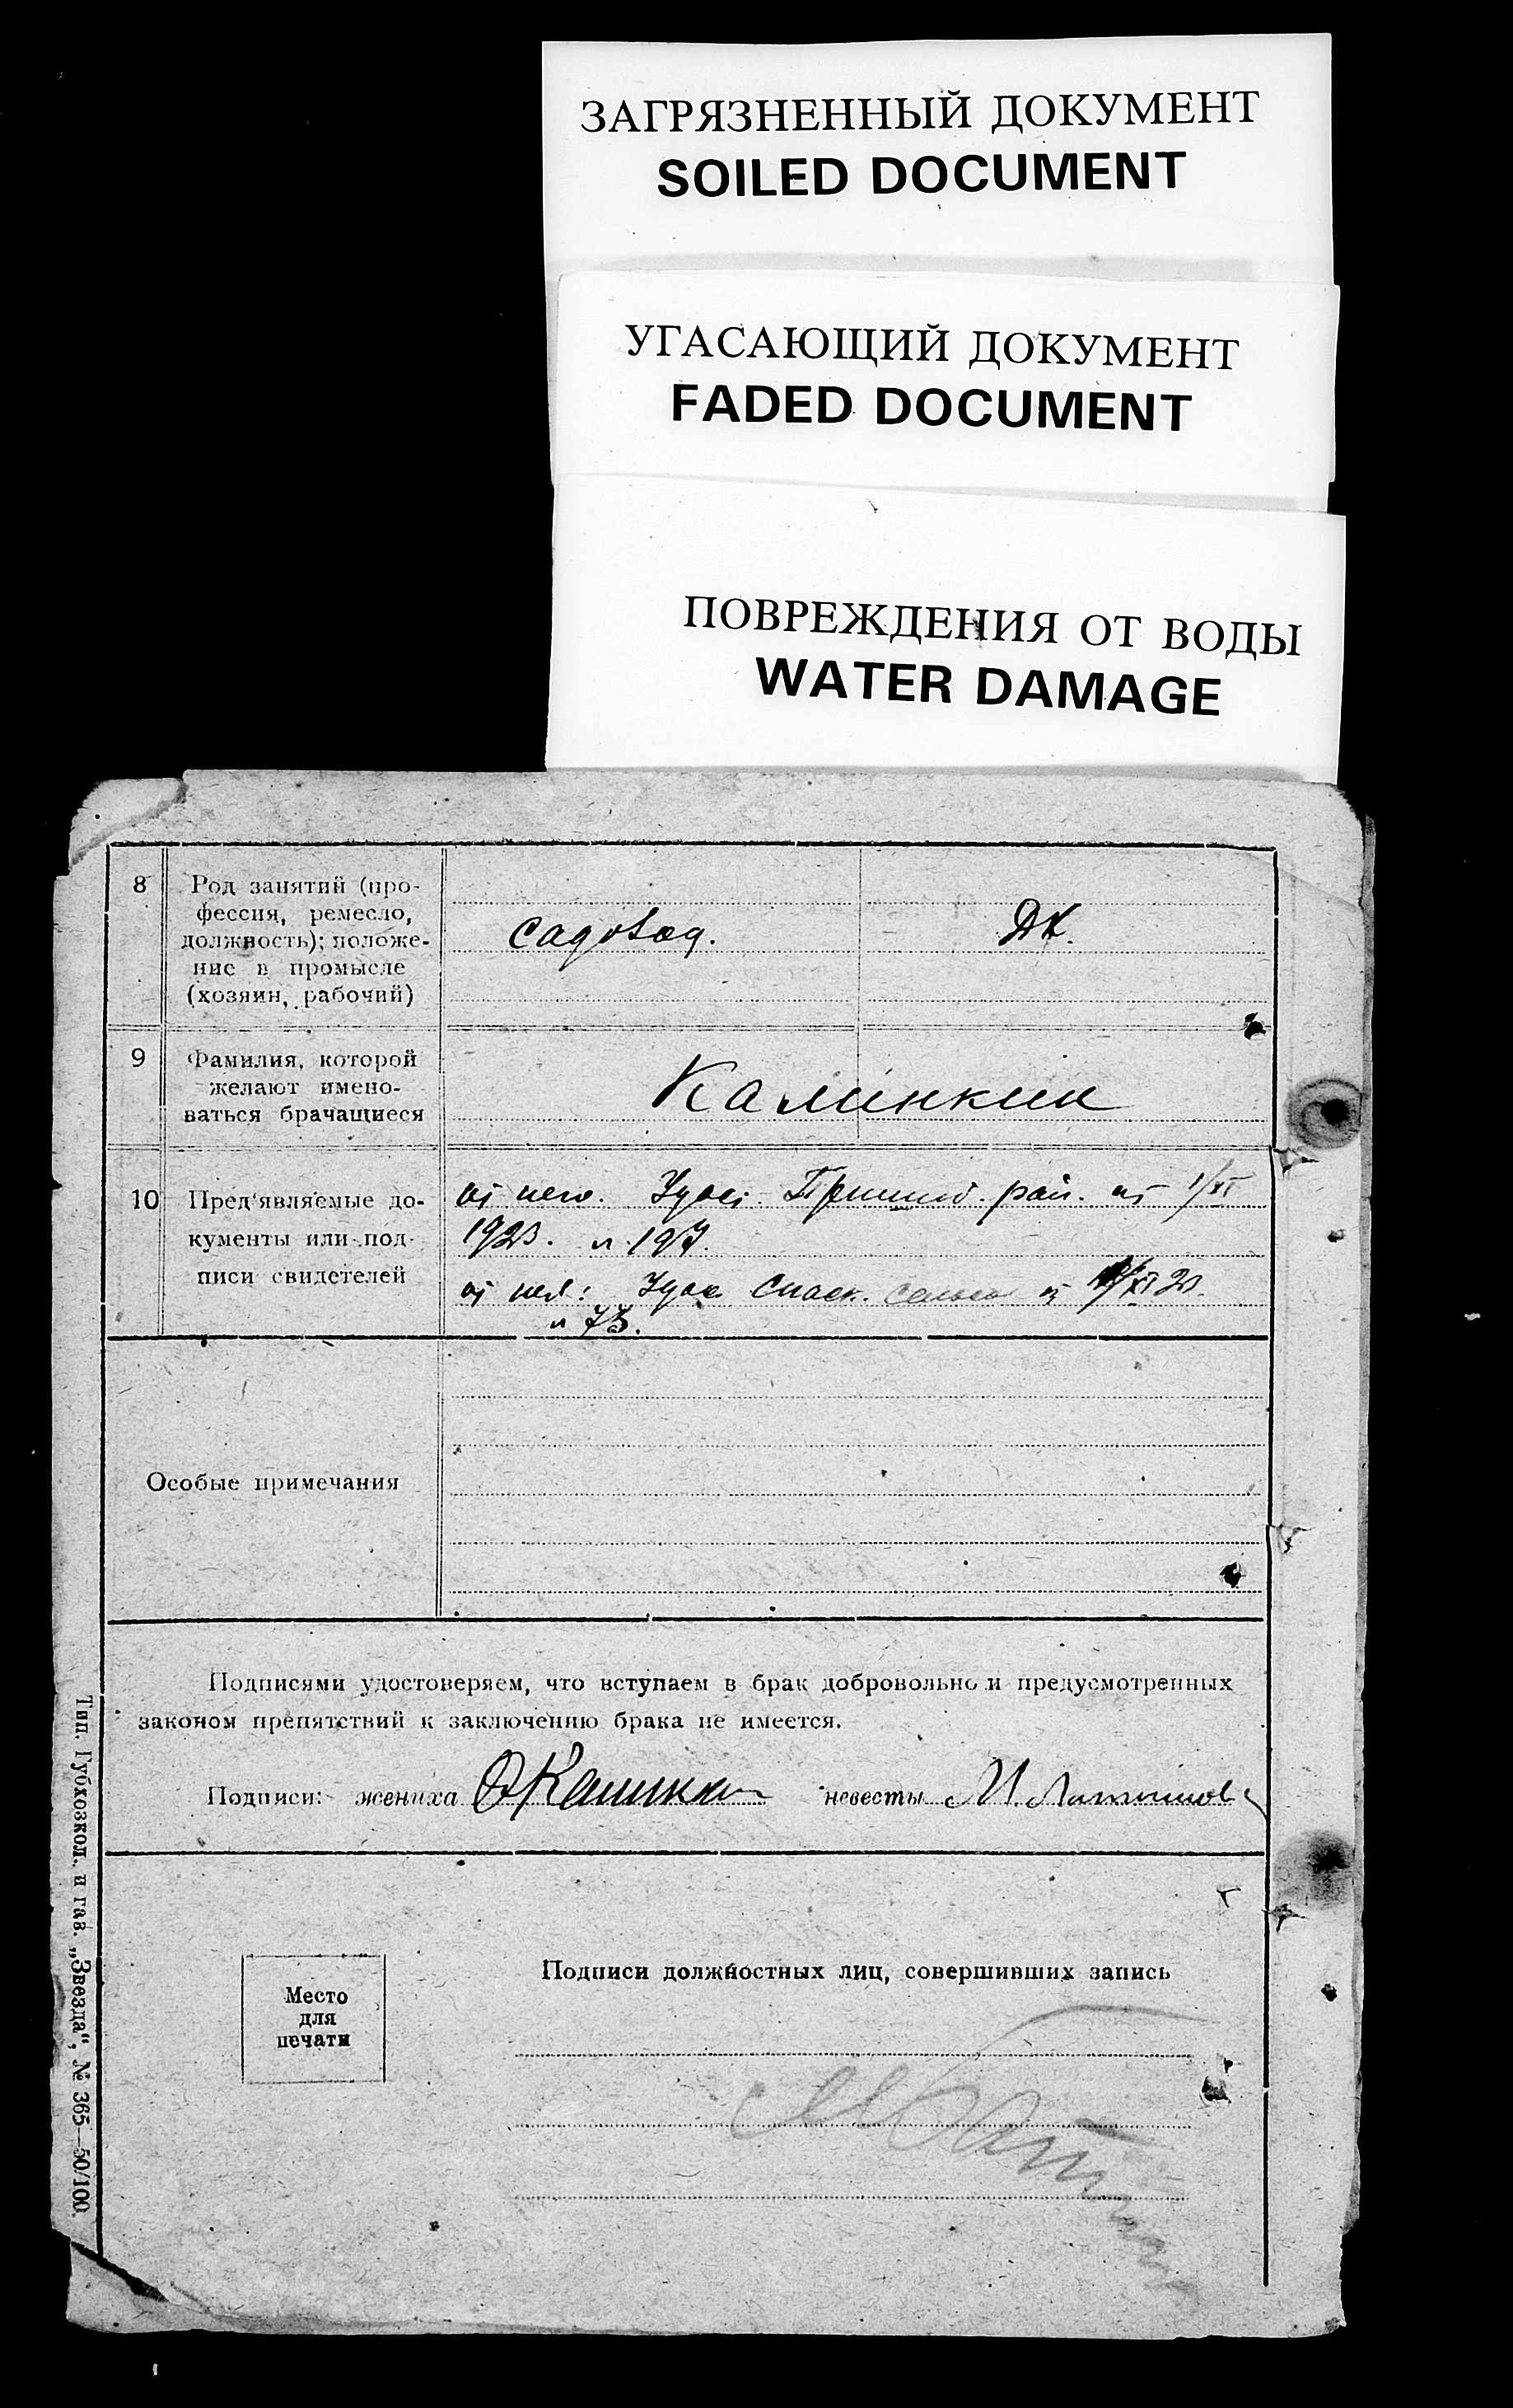 ЗАГРЯЗНЕННЫЙ ДОКУМЕНТ
SOILED DOCUMENT
УГАСАЮЩИЙ ДОКУМЕНТ
FADED DOCUMENT
ПОВРЕЖДЕНИЯ ОТ ВОДЫ
WATER DAMAGE
8 Род занятий (про-
фессия, ремесло,
должность); положе-
ние в промысле
(хозяин, рабочий)
садовод. ДХ.
9 Фамилия, которой
желают имено-
ваться брачащиеся
Калинкин
10 Пред'являемые до-
кументы или под-
писи свидетелей
от него. Удос. рай. от 1/XI
1923. № 197.
от нея: Удос. Спасск. от
№ 73.
Особые примечания
Подписями удостоверяем, что вступаем в брак добровольно и предусмотренных
законом препятствий к заключению брака не имеется.
Подписи: жениха невесты
Место
для
печати
Подписи должностных лиц, совершивших запись
Тип. Губхозкол. и газ. „Звезда“, № 365—50/100.